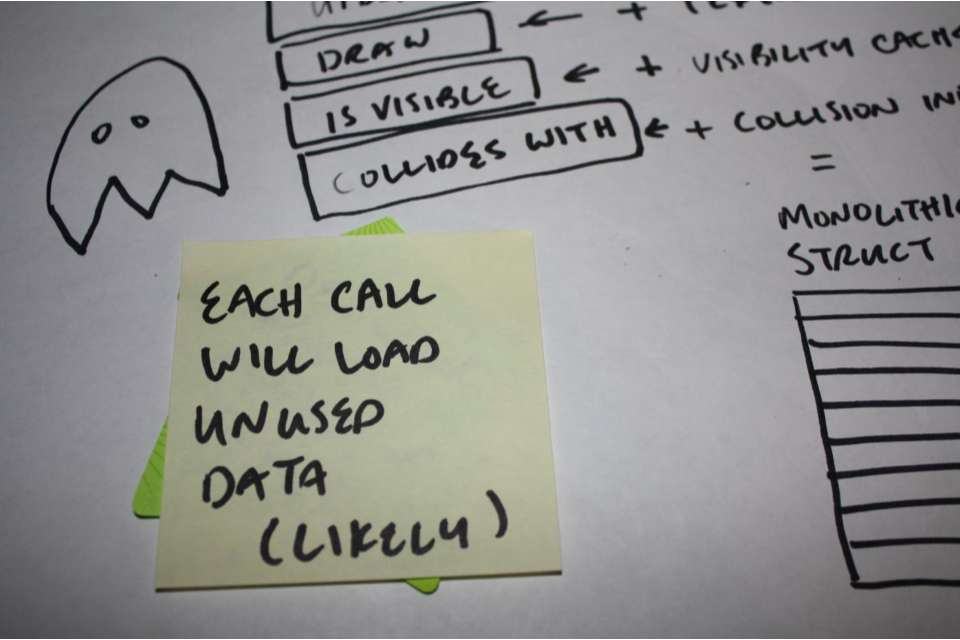 DRAW ← +
IS VISIBLE ← + VISIBILITY
COLLIDES WITH ← + COLLISION
=
MONOLITHIC
STRUCT
EACH CALL
WILL LOAD
UNUSED
DATA
(LIKELY)